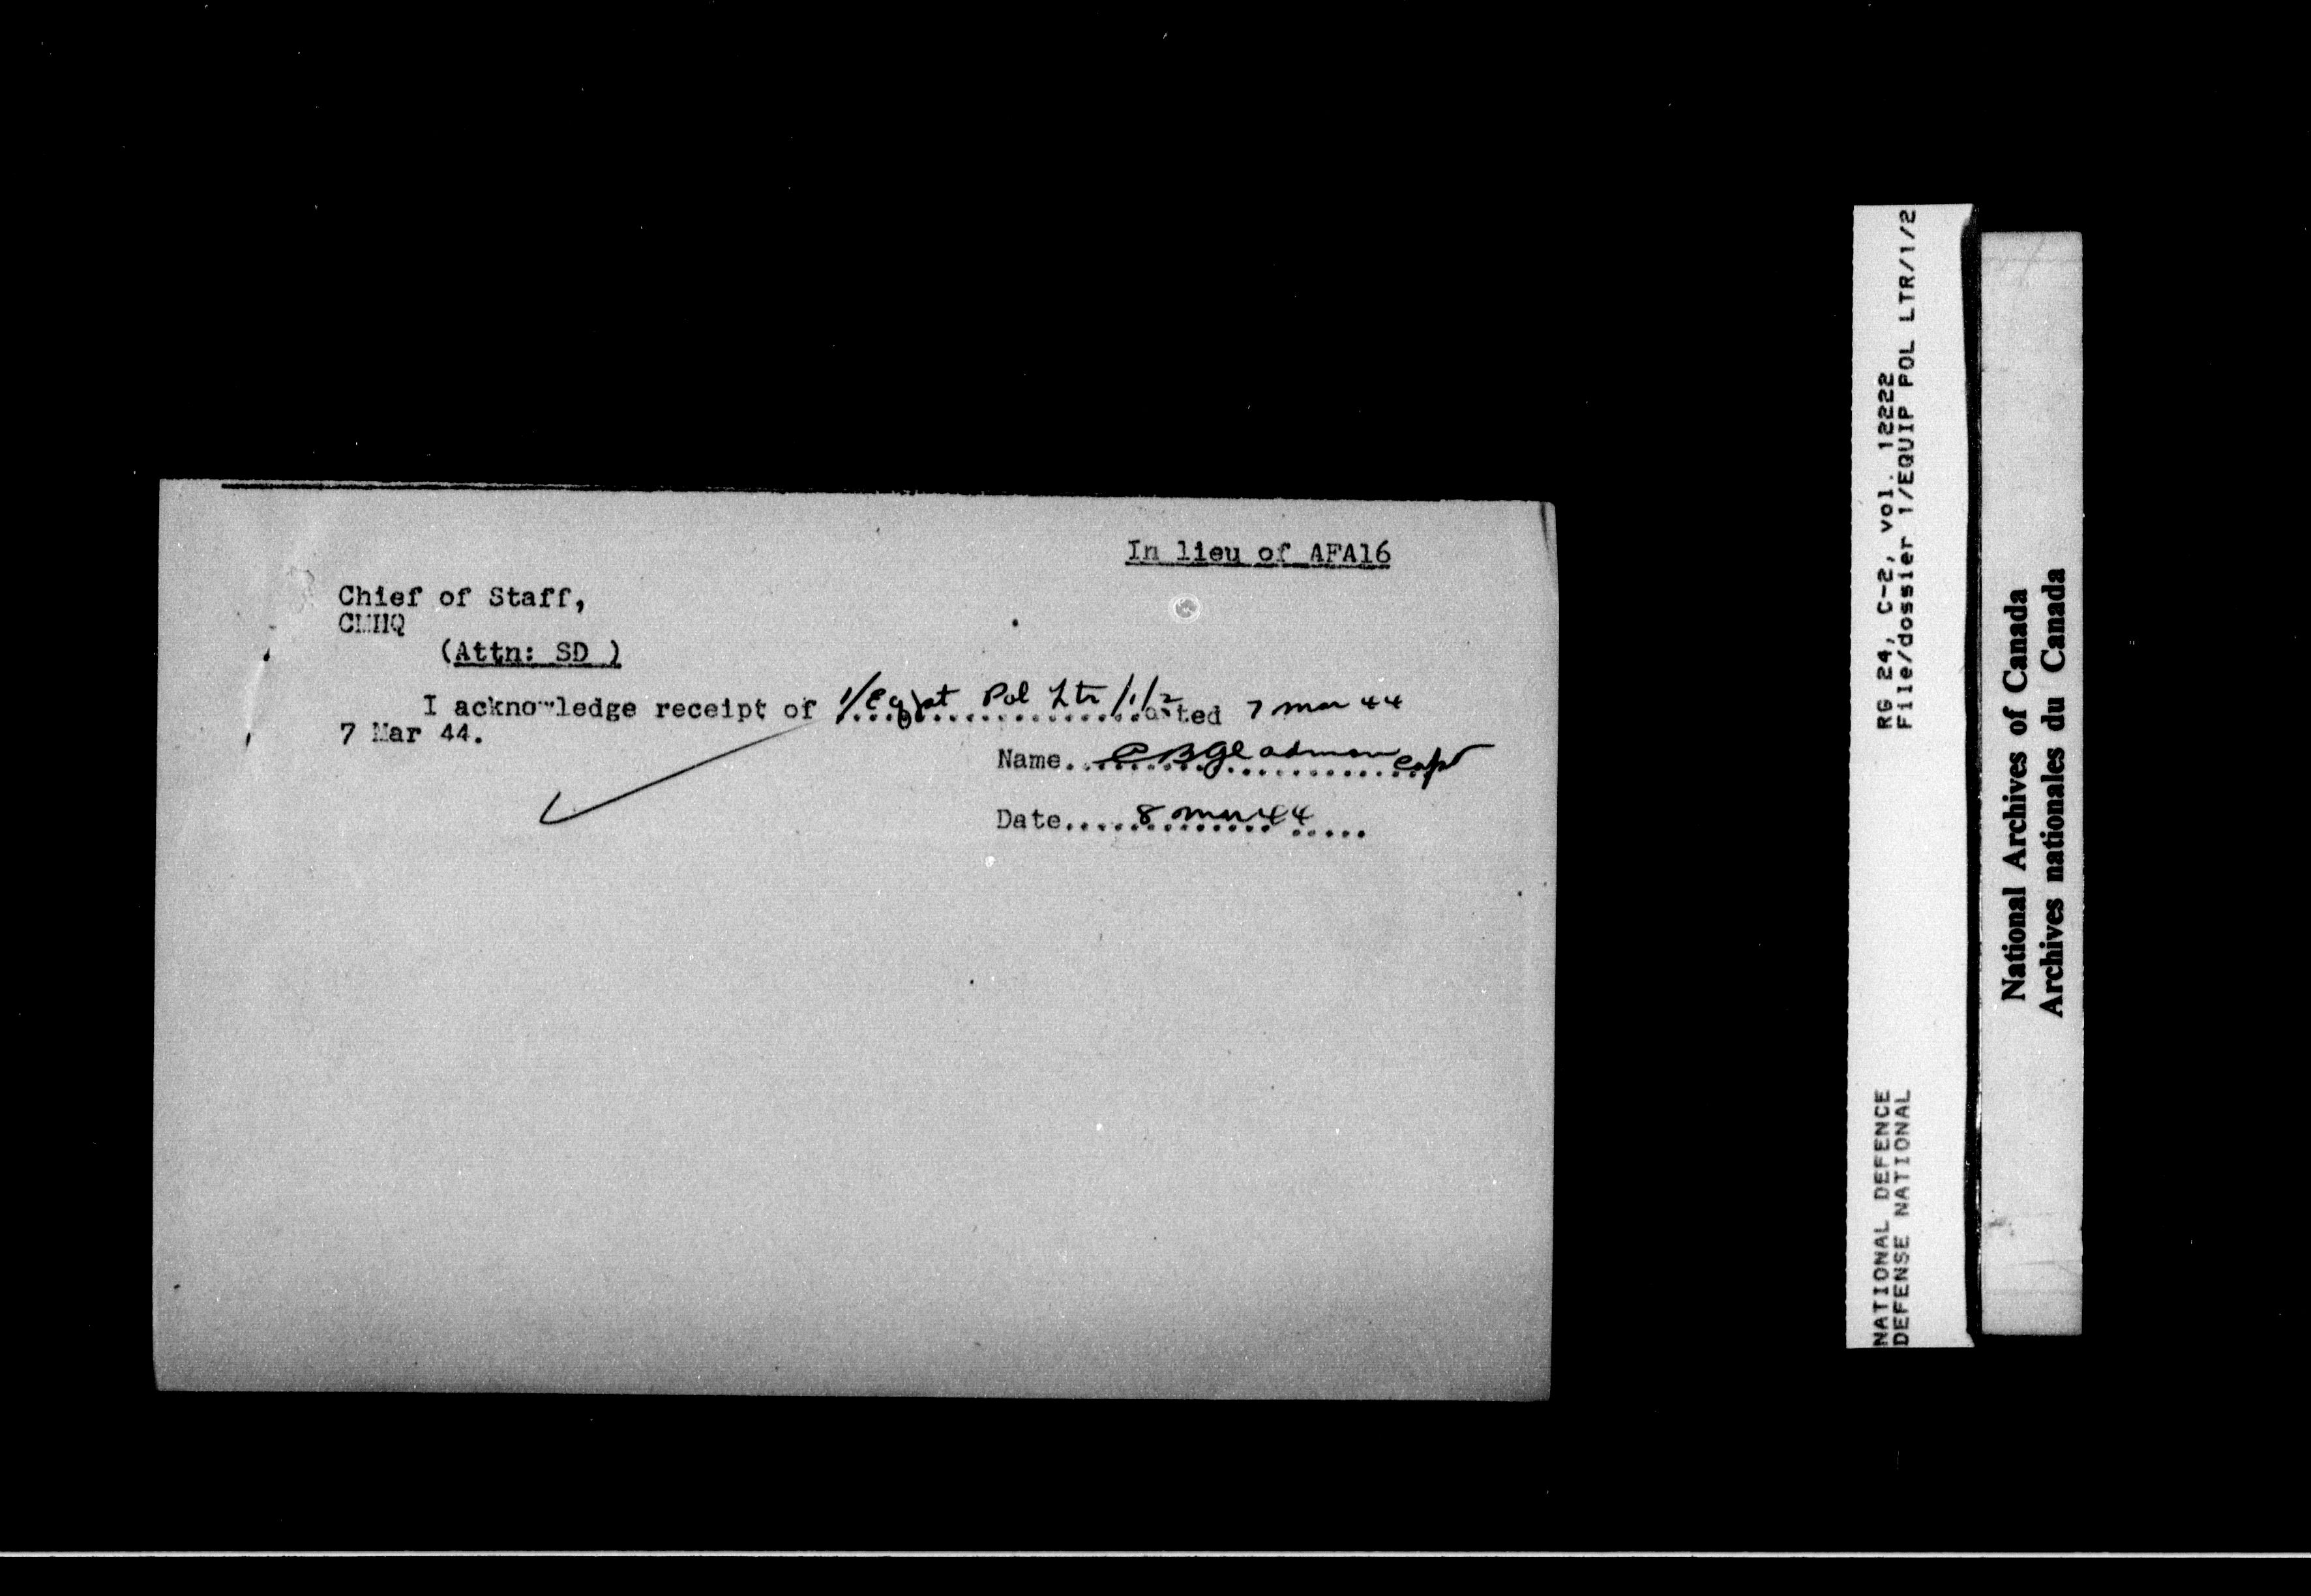 In lieu of AFA16
Chief of Staff,
CMHQ
(Attn: SD )
I acknowledge receipt of 1/Eqpt Pol Ltr/1/2 dated 7 Mar 44
7 Mar 44.
Name.... Gladman Capt
Date.... 8 Mar 44 .....
RG 24, C-2, vol. 12222
File/dossier 1/EQUIP POL LTR/1/2
NATIONAL DEFENCE
DEFENSE NATIONAL
National Archives of Canada
Archives nationales du Canada